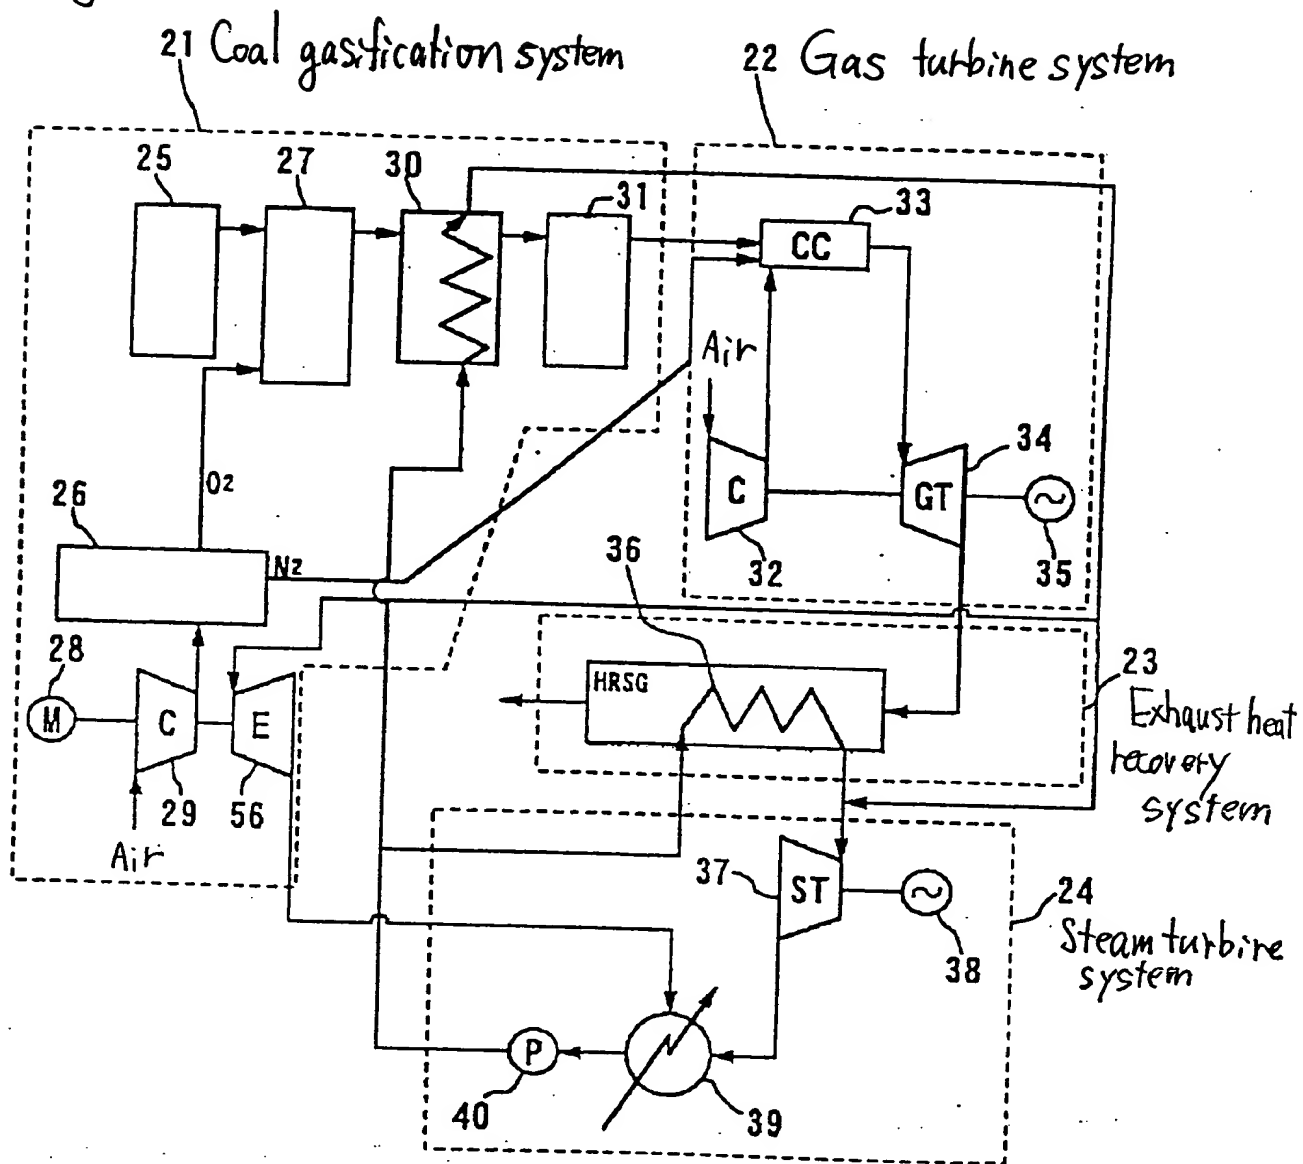 21 Coal gasification system
22 Gas turbine system
25
27
30
31
33
CC
Air
34
C
GT
32
35
O2
26
N2
36
28
M
C
E
HRSG
23
Exhaust heat
recovery
system
29
56
Air
37
ST
24
Steam turbine
system
38
P
40
39